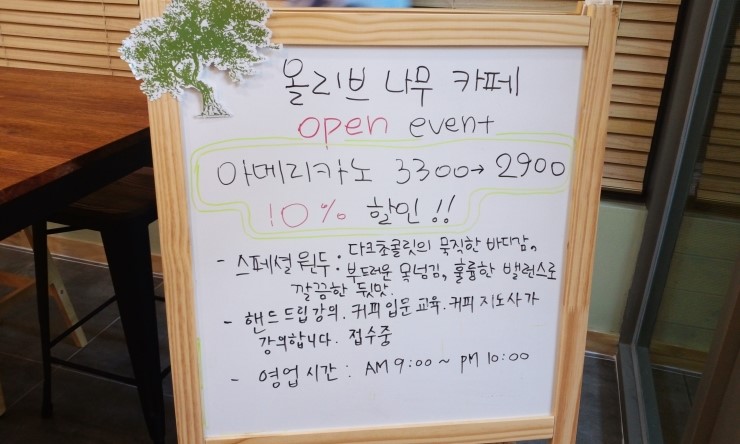 올리브 나무 카페
open event
아메리카노 3300→ 2900
10% 할인 !!
- 스페셜 원두 : 다크초콜릿의 묵직한 바디감,
부드러운 목넘김, 훌륭한 밸런스로
깔끔한 뒷맛.
- 핸드드립 강의. 커피 입문 교육. 커피 지도사가
강의합니다. 접수중
- 영업 시간 : AM 9:00 ~ PM 10:00